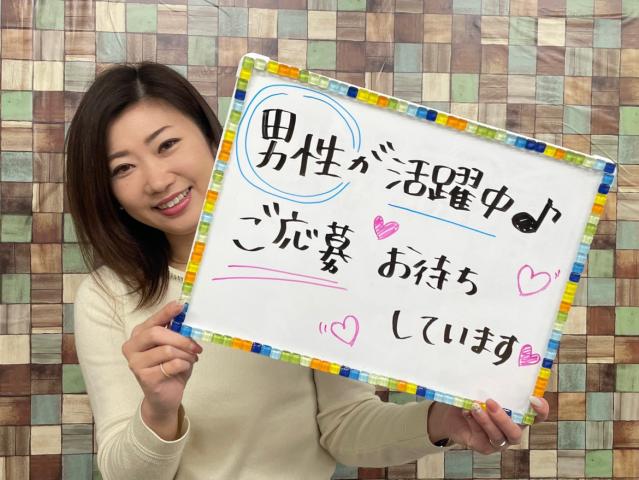 男性が活躍中♪
ご応募お待ち
しています